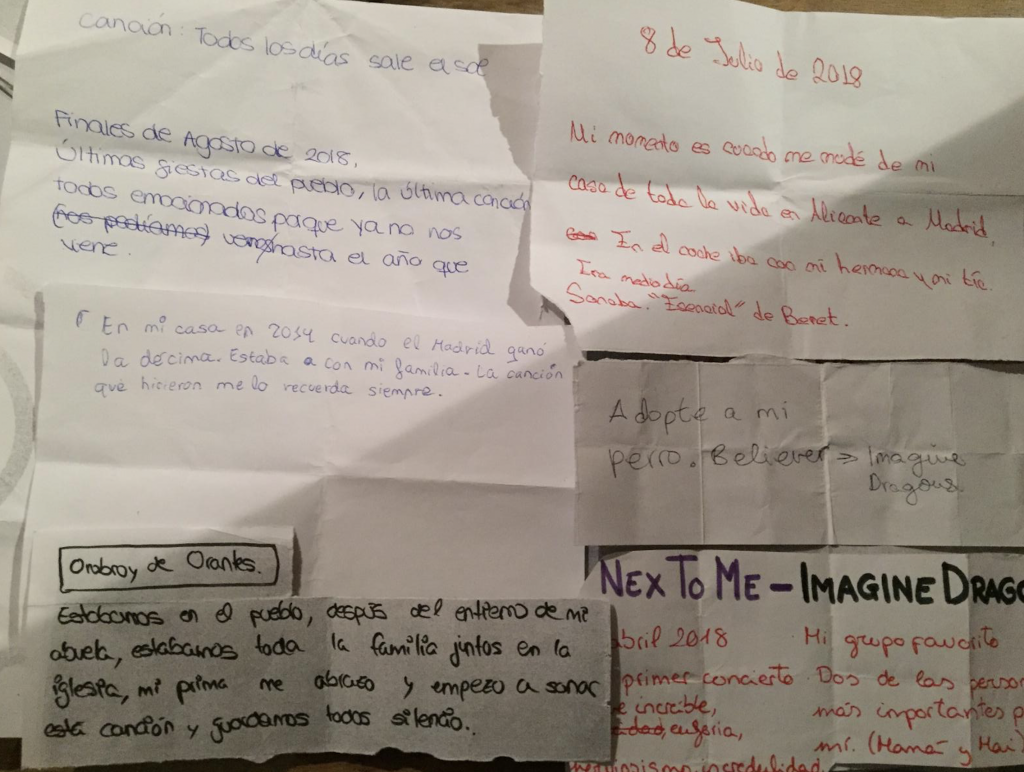 Canción: Todos los días sale el sol
Finales de Agosto de 2018.
Últimas fiestas del pueblo, la última canción
todos emocionados porque ya no nos
(nos podíamos) vemos hasta el año que
viene.
En mi casa en 2014 cuando el Madrid ganó
la décima. Estaba a con mi familia - La canción
que hicieron me lo recuerda siempre.
Orobroy de Orantes.
Estabamos en el pueblo, despüs del entierro de mi
abuela, estabamos toda la familia juntos en la
iglesia, mi prima me abrazo y empezo a sonar
está canción y guardamos todos silencio.
8 de Julio de 2018
Mi momento es cuando me mudé de mi
casa de toda la vida en Alicante a Madrid.
En el coche iba con mi hermana y mi tía.
Era mediodía
Sonaba. "Esencial" de Benet.
Adopte a mi
perro. Believer => Imagine
Dragons
NEX TO ME - IMAGINE DRAGO
abril 2018
primer concierto
e increíble,
euforia,
incredulidad
Mi grupo favorito
Dos de las person
más importantes p
mí. (Mamá y Mai)